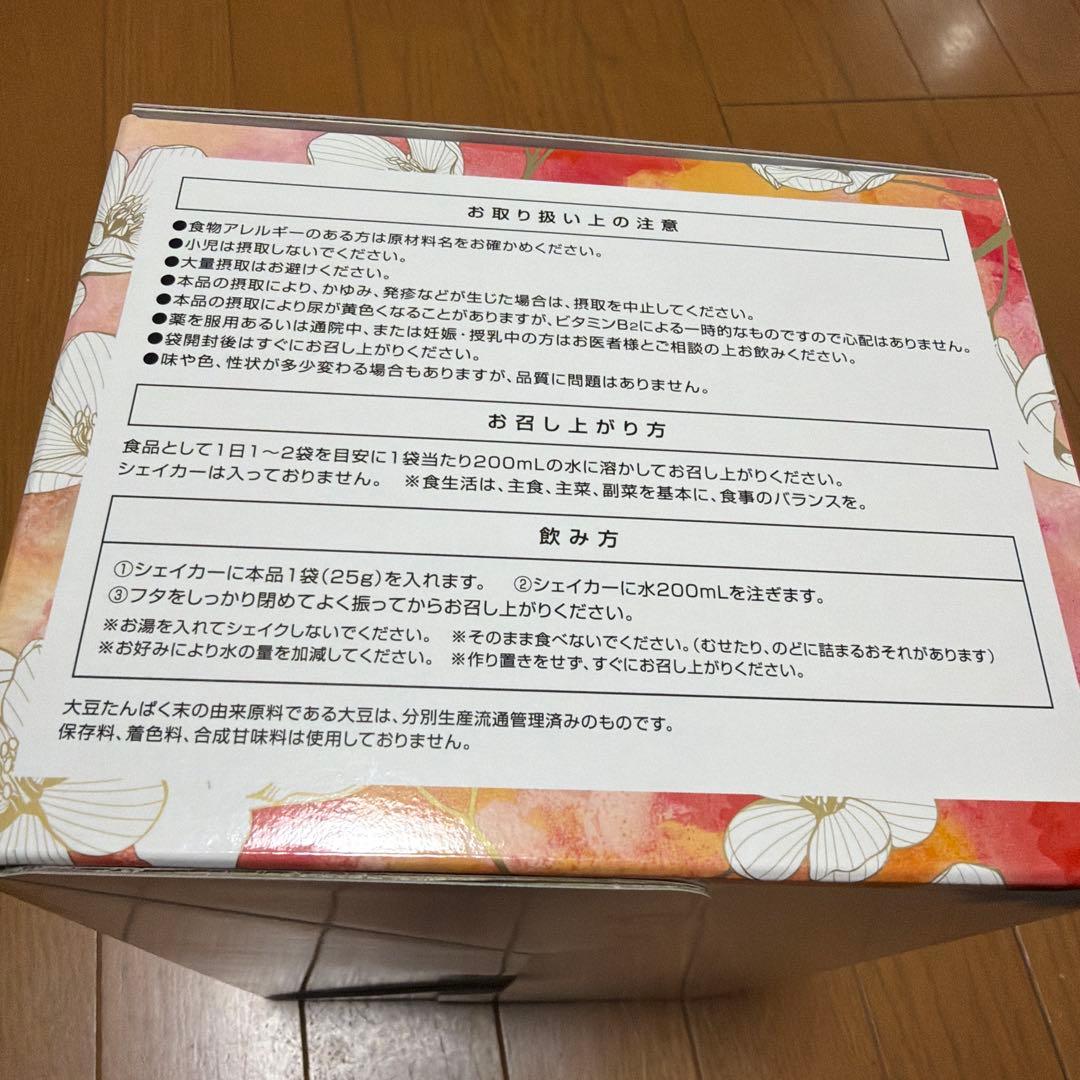 お取り扱い上の注意
●食物アレルギーのある方は原材料名をお確かめください。
●小児は摂取しないでください。
●大量摂取はお避けください。
●本品の摂取により、かゆみ、発疹などが生じた場合は、摂取を中止してください。
●本品の摂取により尿が黄色くなることがありますが、ビタミンB2による一時的なものですので心配はありません。
●薬を服用あるいは通院中、または妊娠・授乳中の方はお医者様とご相談の上お飲みください。
●袋開封後はすぐにお召し上がりください。
●味や色、性状が多少変わる場合もありますが、品質に問題はありません。
お召し上がり方
食品として1日1～2袋を目安に1袋当たり200mLの水に溶かしてお召し上がりください。
シェイカーは入っておりません。 ※食生活は、主食、主菜、副菜を基本に、食事のバランスを。
飲み方
①シェイカーに本品1袋(25g)を入れます。 ②シェイカーに水200mLを注ぎます。
③フタをしっかり閉めてよく振ってからお召し上がりください。
※お湯を入れてシェイクしないでください。 ※そのまま食べないでください。(むせたり、のどに詰まるおそれがあります)
※お好みにより水の量を加減してください。 ※作り置きをせず、すぐにお召し上がりください。
大豆たんぱく末の由来原料である大豆は、分別生産流通管理済みのものです。
保存料、着色料、合成甘味料は使用しておりません。